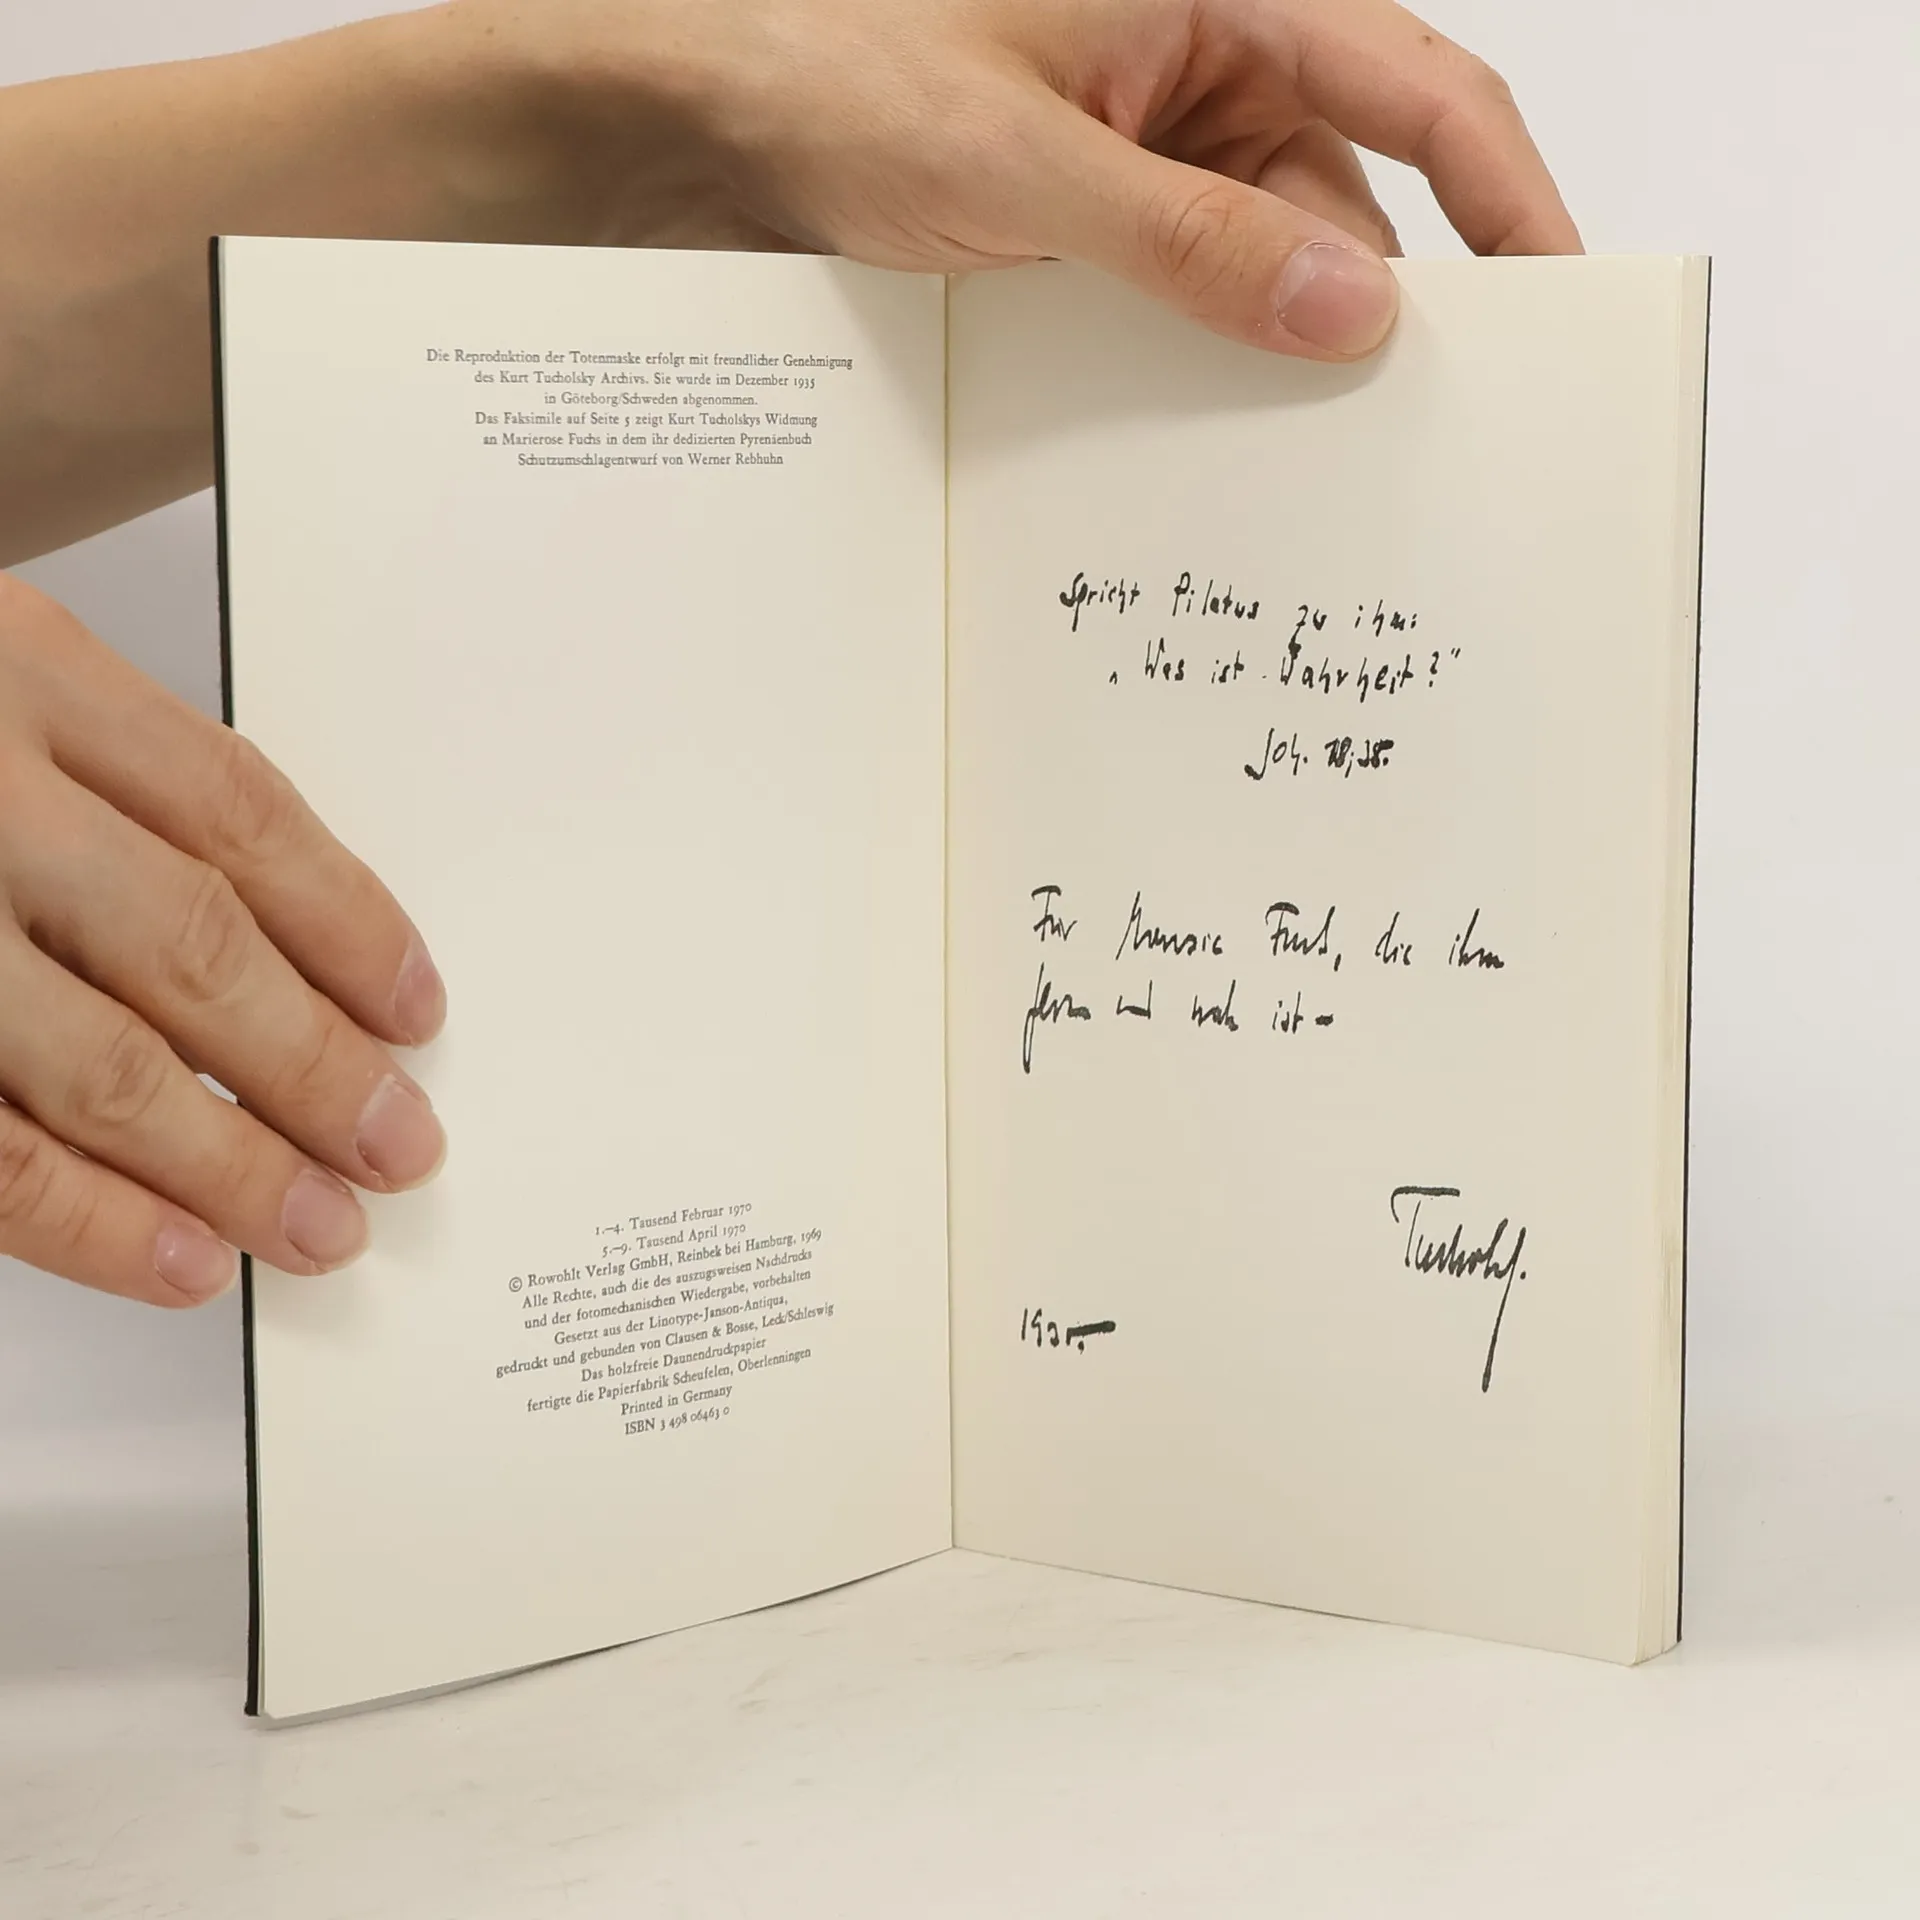 Die Reproduktion der Totenmaske erfolgt mit freundlicher Genehmigung
des Kurt Tucholsky Archivs. Sie wurde im Dezember 1935
in Göteborg/Schweden abgenommen.
Das Faksimile auf Seite 5 zeigt Kurt Tucholskys Widmung
an Marierose Fuchs in dem ihr dedizierten Pyrenäenbuch
Schutzumschlagentwurf von Werner Rebhuhn
1.–4. Tausend Februar 1970
5.–9. Tausend April 1970
© Rowohlt Verlag GmbH, Reinbek bei Hamburg, 1969
Alle Rechte, auch die des auszugsweisen Nachdrucks
und der fotomechanischen Wiedergabe, vorbehalten
Gesetzt aus der Linotype-Janson-Antiqua,
gedruckt und gebunden von Clausen & Bosse, Leck/Schleswig
Das holzfreie Daunendruckpapier
fertigte die Papierfabrik Scheufelen, Oberlenningen
Printed in Germany
ISBN 3 498 06463 0
Spricht Pilatus zu ihm:
„Was ist Wahrheit?"
Joh. 18,38.
Für Fuchs, die ihm
und nah ist –
Tucholsky.